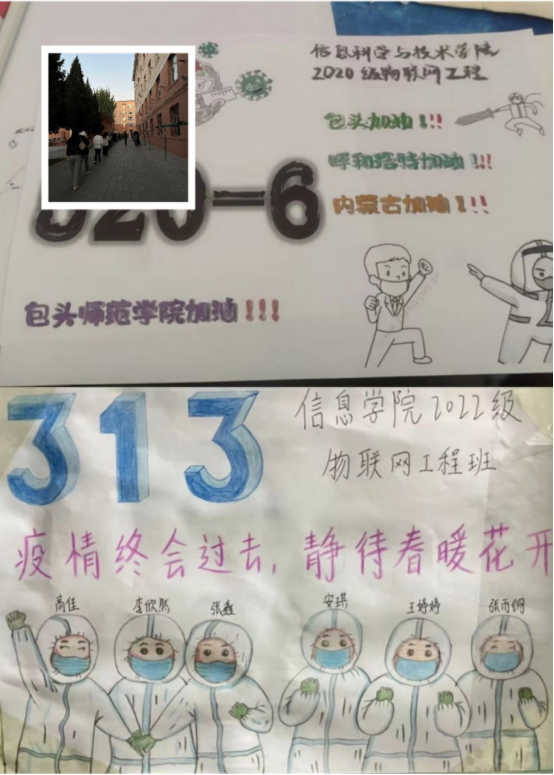 信息科学与技术学院
2020级物联网工程
包头加油!!!
呼和浩特加油!!!
内蒙古加油!!!
820-6
包头师范学院加油!!!
313
信息学院2022级
物联网工程班
疫情终会过去,静待春暖花开
高佳
李欣彤
张鑫
安琪
王婷婷